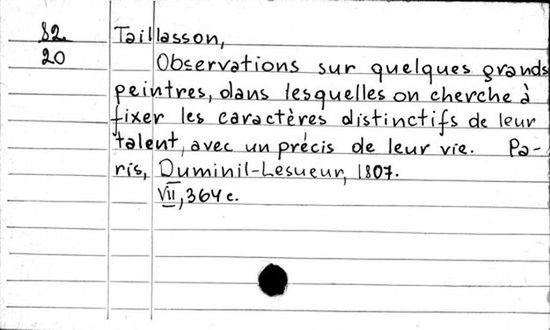 82
20
Taillasson,
Observations sur quelques grands
peintres, dans lesquelles on cherche à
fixer les caractères distinctifs de leur
talent, avec un précis de leur vie. Pa-
ris, Duminil-Lesueur, 1807.
VII, 364 c.